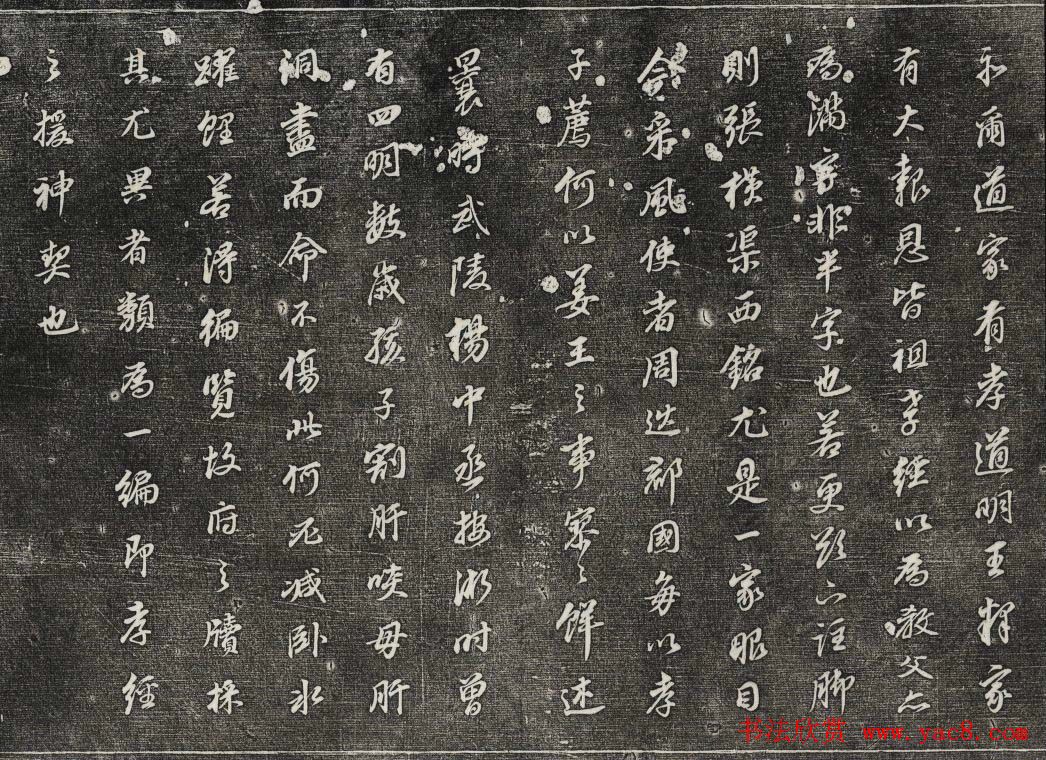 示爾道家有孝道明王釋家
有大報恩皆祖孝經以為教父亦
為滿字非半字也若更欲下註腳
則張橫渠西銘尤是一家眼目
命采風使者周巡郡國每以孝
子薦何以姜王之事寥寥鮮述
曩時武陵楊中丞按浙時曾
有四明數歲孩子割肝啖母肝
洞盡而命不傷此何况減臥冰
躍鯉若得徧覽故府之牘採
其尤異者類為一編即孝經
之援神契也
书法欣赏 www.yac8.com